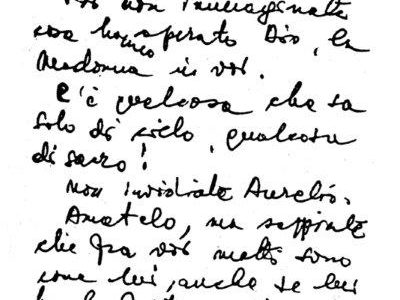 Voi non immaginate
cosa hanno operato Dio, la
Madonna in voi.
C'è qualcosa che sa
solo di cielo, qualcosa
di sacro!
Non invidiate Aurelio.
Amatelo, ma sappiate
che fra voi molti sono
come lui, anche se lui